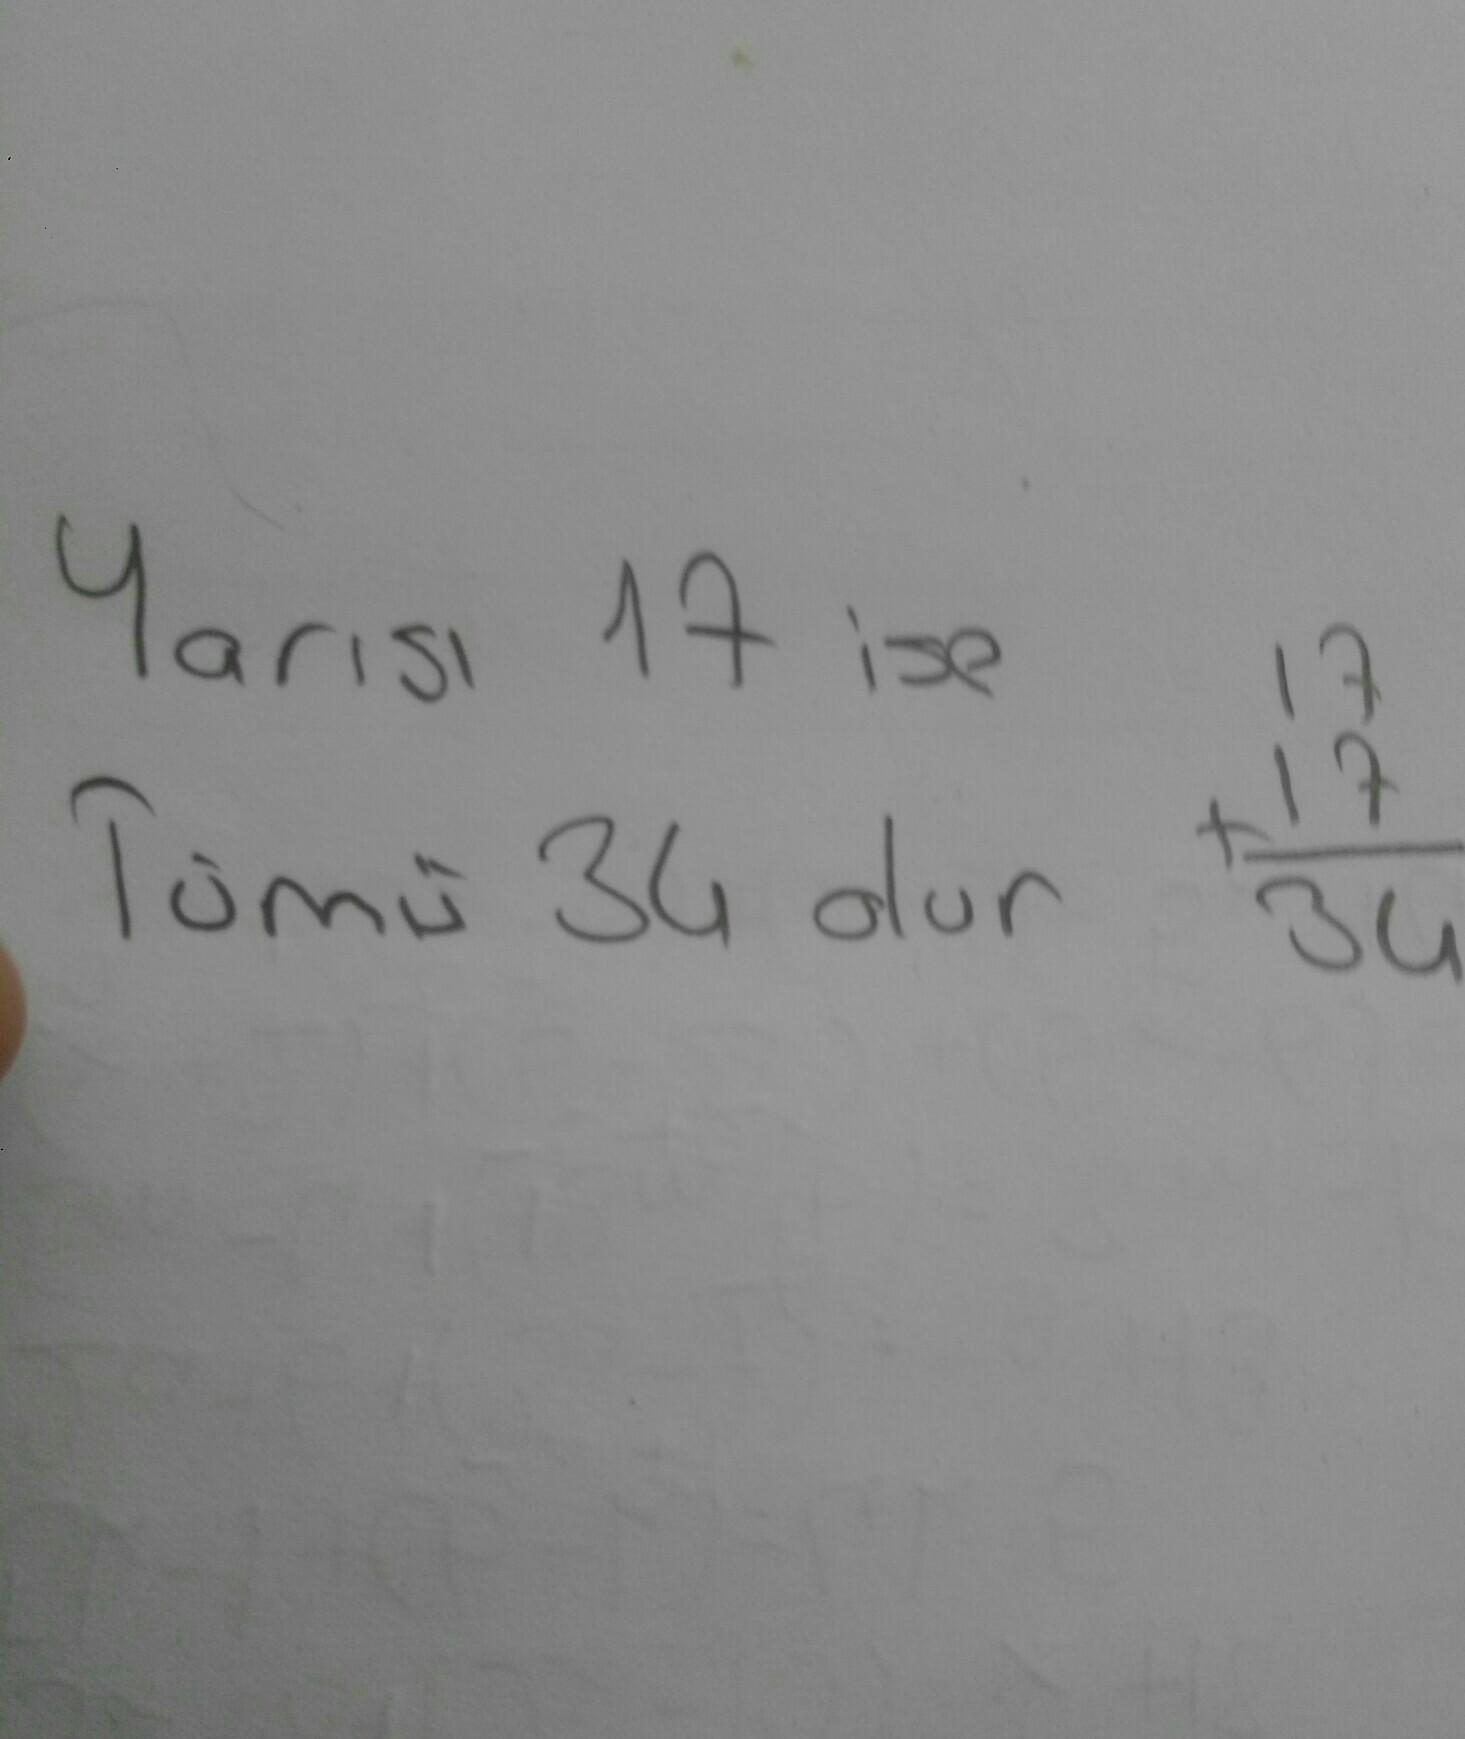 Yarısı 17 ise
Tümü 34 olur
17
17
+
34